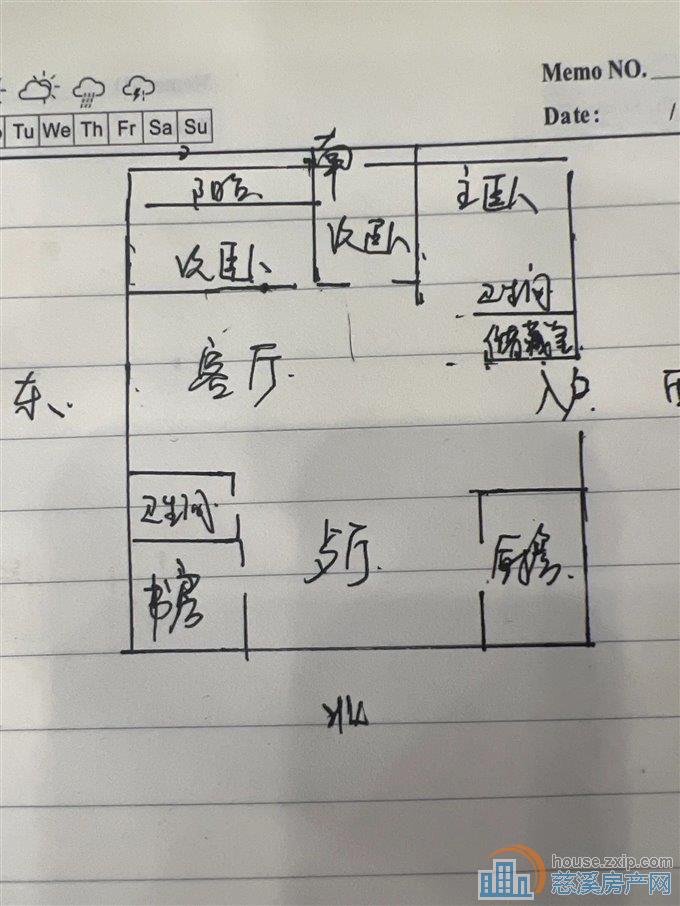 Memo NO.
Tu We Th Fr Sa Su
Date: /
南
阳台
主卧
次卧
次卧
卫生间
储藏室
客厅
东
入户
卫生间
厨房
书房
北
house.zxip.com
慈溪房产网